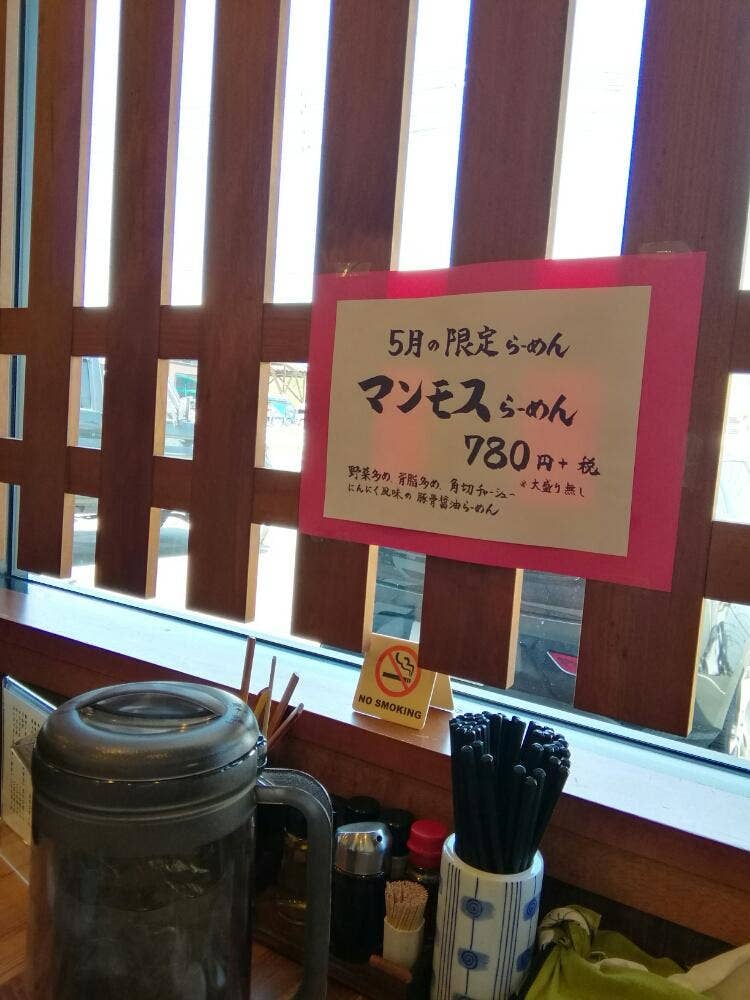 5月の限定らーめん
マンモスらーめん
780円+税
野菜多め、背脂多め、角切チャーシュー ※大盛り無し
にんにく風味の豚骨醤油らーめん
NO SMOKING